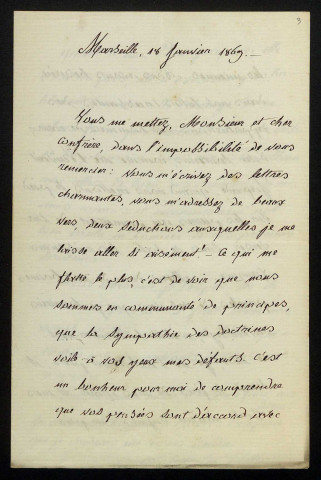 3
Marseille, 18 Janvier 1869. —
Vous me mettez, Monsieur et cher
confrère, dans l'impossibilité de vous
remercier : vous m'écrivez des lettres
charmantes, vous m'adressez de beaux
vers, deux séductions auxquelles je me
laisse aller si aisément ! — Ce qui me
flatte le plus, c'est de voir que nous
sommes en communauté de principes,
que la sympathie des doctrines
voile à vos yeux mes défauts. C'est
un bonheur pour moi de comprendre
que vos pensées sont d'accord avec